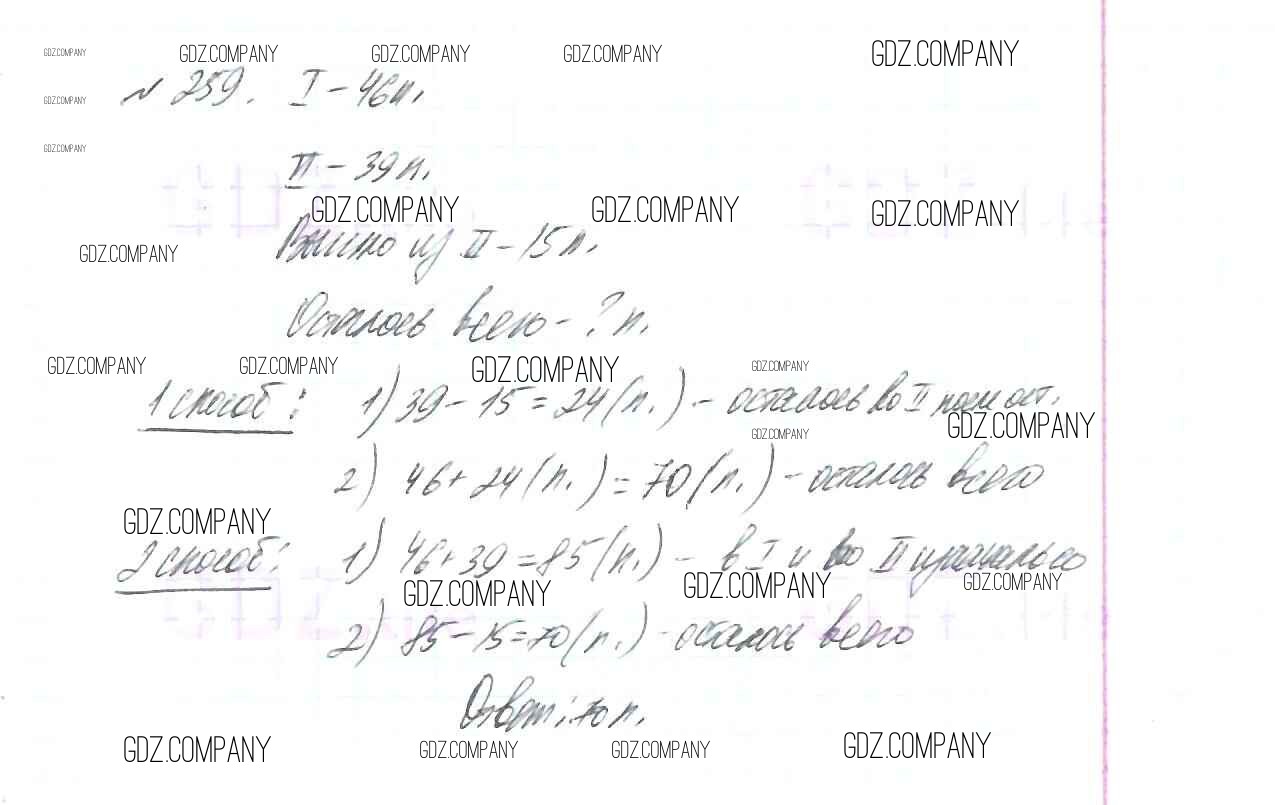 GDZ.COMPANY GDZ.COMPANY GDZ.COMPANY GDZ.COMPANY GDZ.COMPANY
№ 259. I – 46п.
GDZ.COMPANY
GDZ.COMPANY
II – 39п.
GDZ.COMPANY GDZ.COMPANY GDZ.COMPANY
Вышло из II – 15п.
GDZ.COMPANY
Осталось всего – ? п.
GDZ.COMPANY GDZ.COMPANY GDZ.COMPANY GDZ.COMPANY
1 способ: 1) 39 – 15 = 24 (п.) – осталось во II после ост.
GDZ.COMPANY
GDZ.COMPANY
2) 46 + 24 (п.) = 70 (п.) – осталось всего
GDZ.COMPANY
2 способ: 1) 46 + 39 = 85 (п.) – в I и во II
GDZ.COMPANY GDZ.COMPANY GDZ.COMPANY
2) 85 – 15 = 70 (п.) – осталось всего
Ответ: 70 п.
GDZ.COMPANY GDZ.COMPANY GDZ.COMPANY GDZ.COMPANY